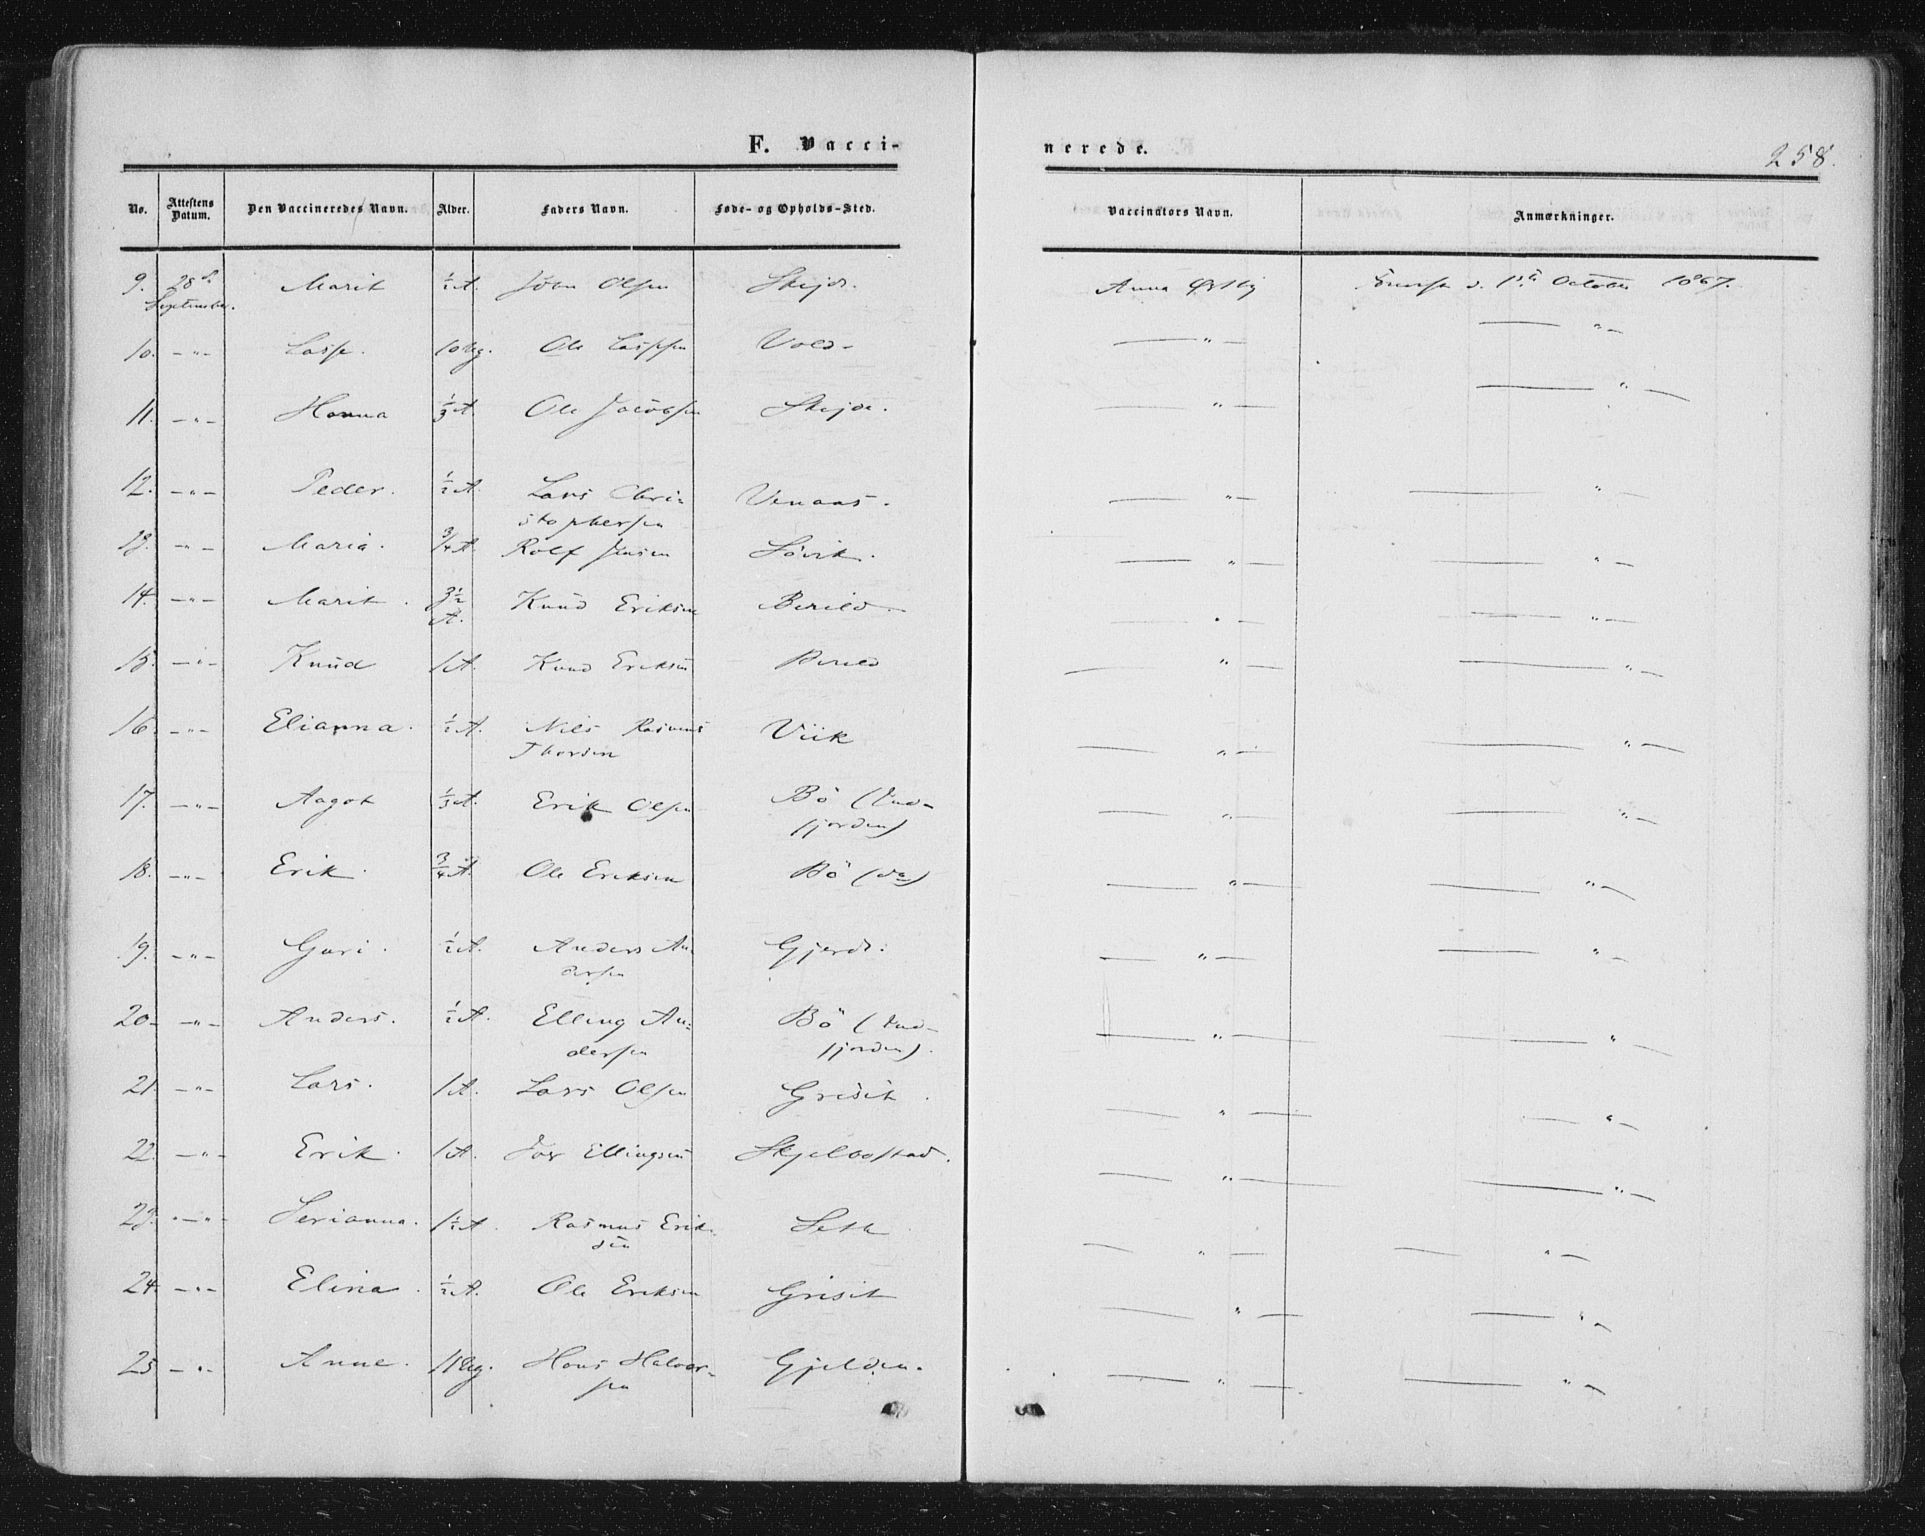 F. Vacci-
nerede.
258.
No. Attestens Datum. Den Vaccineredes Navn. Alder. Faders Navn. Føde- og Opholds-Sted. Vaccinators Navn. Anmærkninger.
9. 28de September. Marit ½ A. Olsen Anna Østby October 1867.
10. -"- 10 Ug. Ole Vold -"- -"-
11. -"- Hanna ⅓ A. Ole Jacobsen -"- -"-
12. -"- Peder. ½ A. Lars Chri-
stophersen Venaas. -"- -"-
13. -"- Maria. ¾ A. Rolf Jensen Søvik. -"- -"-
14. -"- Marit. 3½ A. Knud Eriksen Berild -"- -"-
15. -"- Knud 1 A. Knud Eriksen Berild -"- -"-
16. -"- Elianna. ½ A. Nils Rasmus
Thorsen Viik -"- -"-
17. -"- Aagot ⅓ A. Erik Olsen Bö (Ind-
fjorden) -"- -"-
18. -"- Erik. ¾ A. Ole Eriksen Bö (do) -"- -"-
19. -"- Guri. ½ A. Anders An-
dersen Gjerde. -"- -"-
20. -"- Anders. ½ A. Elling An-
dersen Bö (Ind-
fjorden). -"- -"-
21. -"- Lars. 1 A. Lars Olsen Griset. -"- -"-
22. -"- Erik. 1 A. Ellingsen Skjelbostad. -"- -"-
23. -"- Serianna. 1½ A. Rasmus Erik-
sen Seth -"- -"-
24. -"- Elina. ½ A. Ole Eriksen Griset -"- -"-
25. -"- Anne. 11 Ug. Hans Halvor-
sen Gjelden. -"- -"-